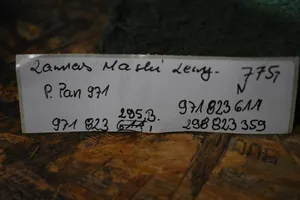 Zamek Maski Lewy. 775,
P. Pan 971 N
971 823 611
295,B.
971 823 611, 298 823 359